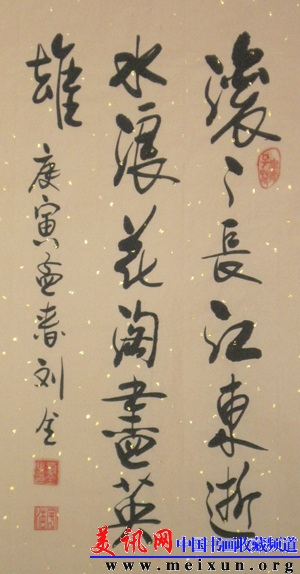 滚〻長江東逝
水浪花淘盡英
雄
庚寅孟春刘全
美讯网 中国书画收藏频道
www.meixun.org